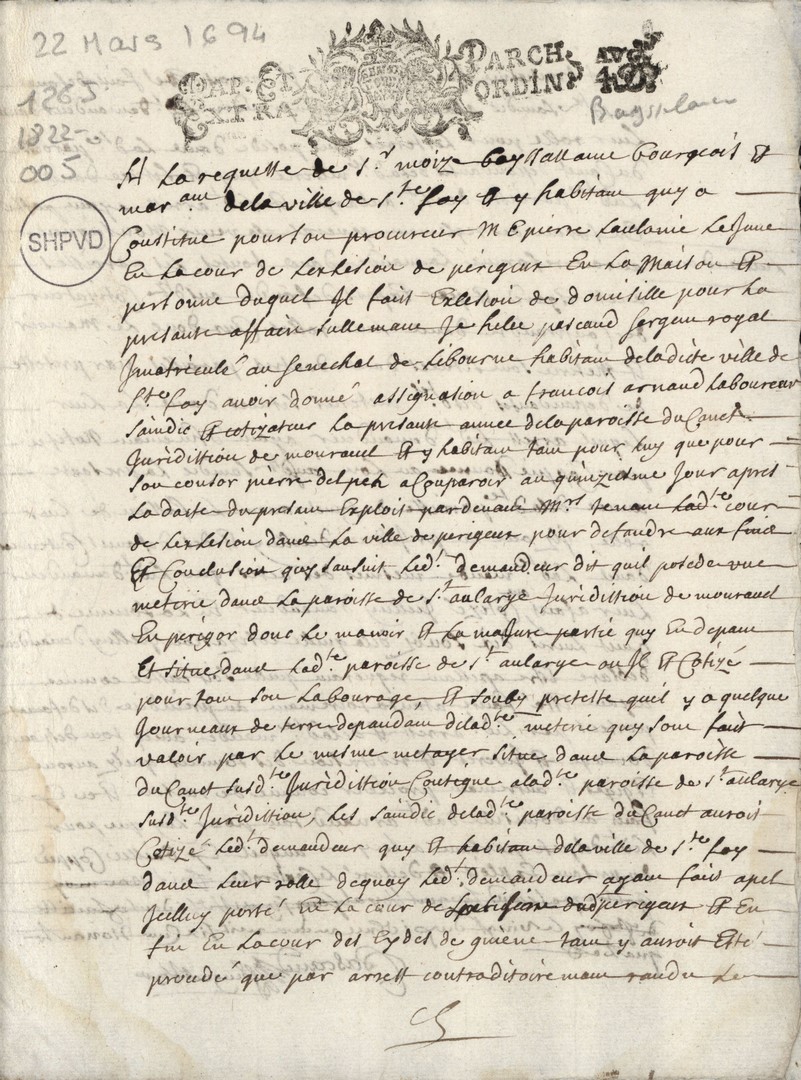 22 Mars 1694
PAP. ET
EXTRA
PARCH.
ORDIN
1265
1822-
005
SHPVD
A la requette de S.r moize Bayssallame bourgeois et
mar.am dela ville de S.te foy et y habitam quy a
Constitue pour son procureur M Epierre Laulanie Le June
En la cour de Leslesion de perigeux En la Maison et
personne duquel Il faist Eslesion de domisille pour la
presante affaire sullemane Je helie pascaud sergeam royal
Jmatriculé au senechal de Libourne habitam dela dite ville de
S.te foy avoir donné assignation a francois arnaud laboureur
saindic et cotizateur la presante annee dela paroisse du Canet
Juridittion de mouravel et y habitam tam pour luy que pour
son consor pierre delpeh a Comparoir au quinziesme Jour apres
La datte du presam Exploit pardevam M.rs tenam lad.te cour
de Leslesion dans la ville de perigeux pour defandre aux fins
et Conclusion quy sansuit Led.t demandeur dit quil posede vne
meterie dans la paroisse de S.t aularye Juridittion de mouravel
En perigor donc le manoir et la majure partie quy En depam
Est situe dans lad.te paroisse de S.t aularye ou Jl est Cotizé
pour tout son labourage, et soubs preteste quil y a quelque
Journeaux de terre depandam de lad.te meterie quy sont faist
valoir par le mesme metayer situe dans la paroisse
du Canet susd.te Juridittion Contigue a lad.te paroisse de S.t aularye
susd.te Juridittion, les saindic de lad.te paroisse du Canet aurois
Cotizé led.t demandeur quy est habitam dela ville de S.te foy
dans leur rolle dequoy led.t demandeur ayam faist apel
Jcelluy porté En la cour de perigeux et En
fin En la cour des Eydes de guiene tam y auroit Esté
procedé que par arrest contraditoiremam randu le